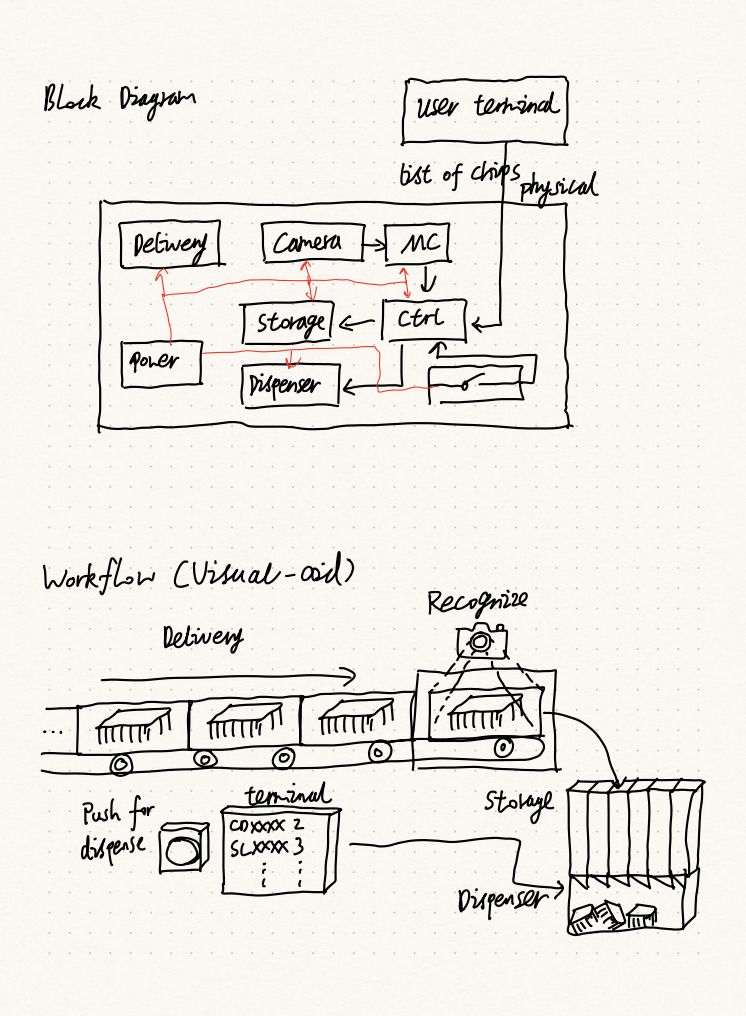 Block Diagram
User terminal
list of chips
physical
Delivery
Camera
MC
Storage
Ctrl
Power
Dispenser
Workflow (Visual-aid)
Recognize
Delivery
...
Storage
Push for
dispense
terminal
CDXXXX 2
SLXXXX 3
Dispenser